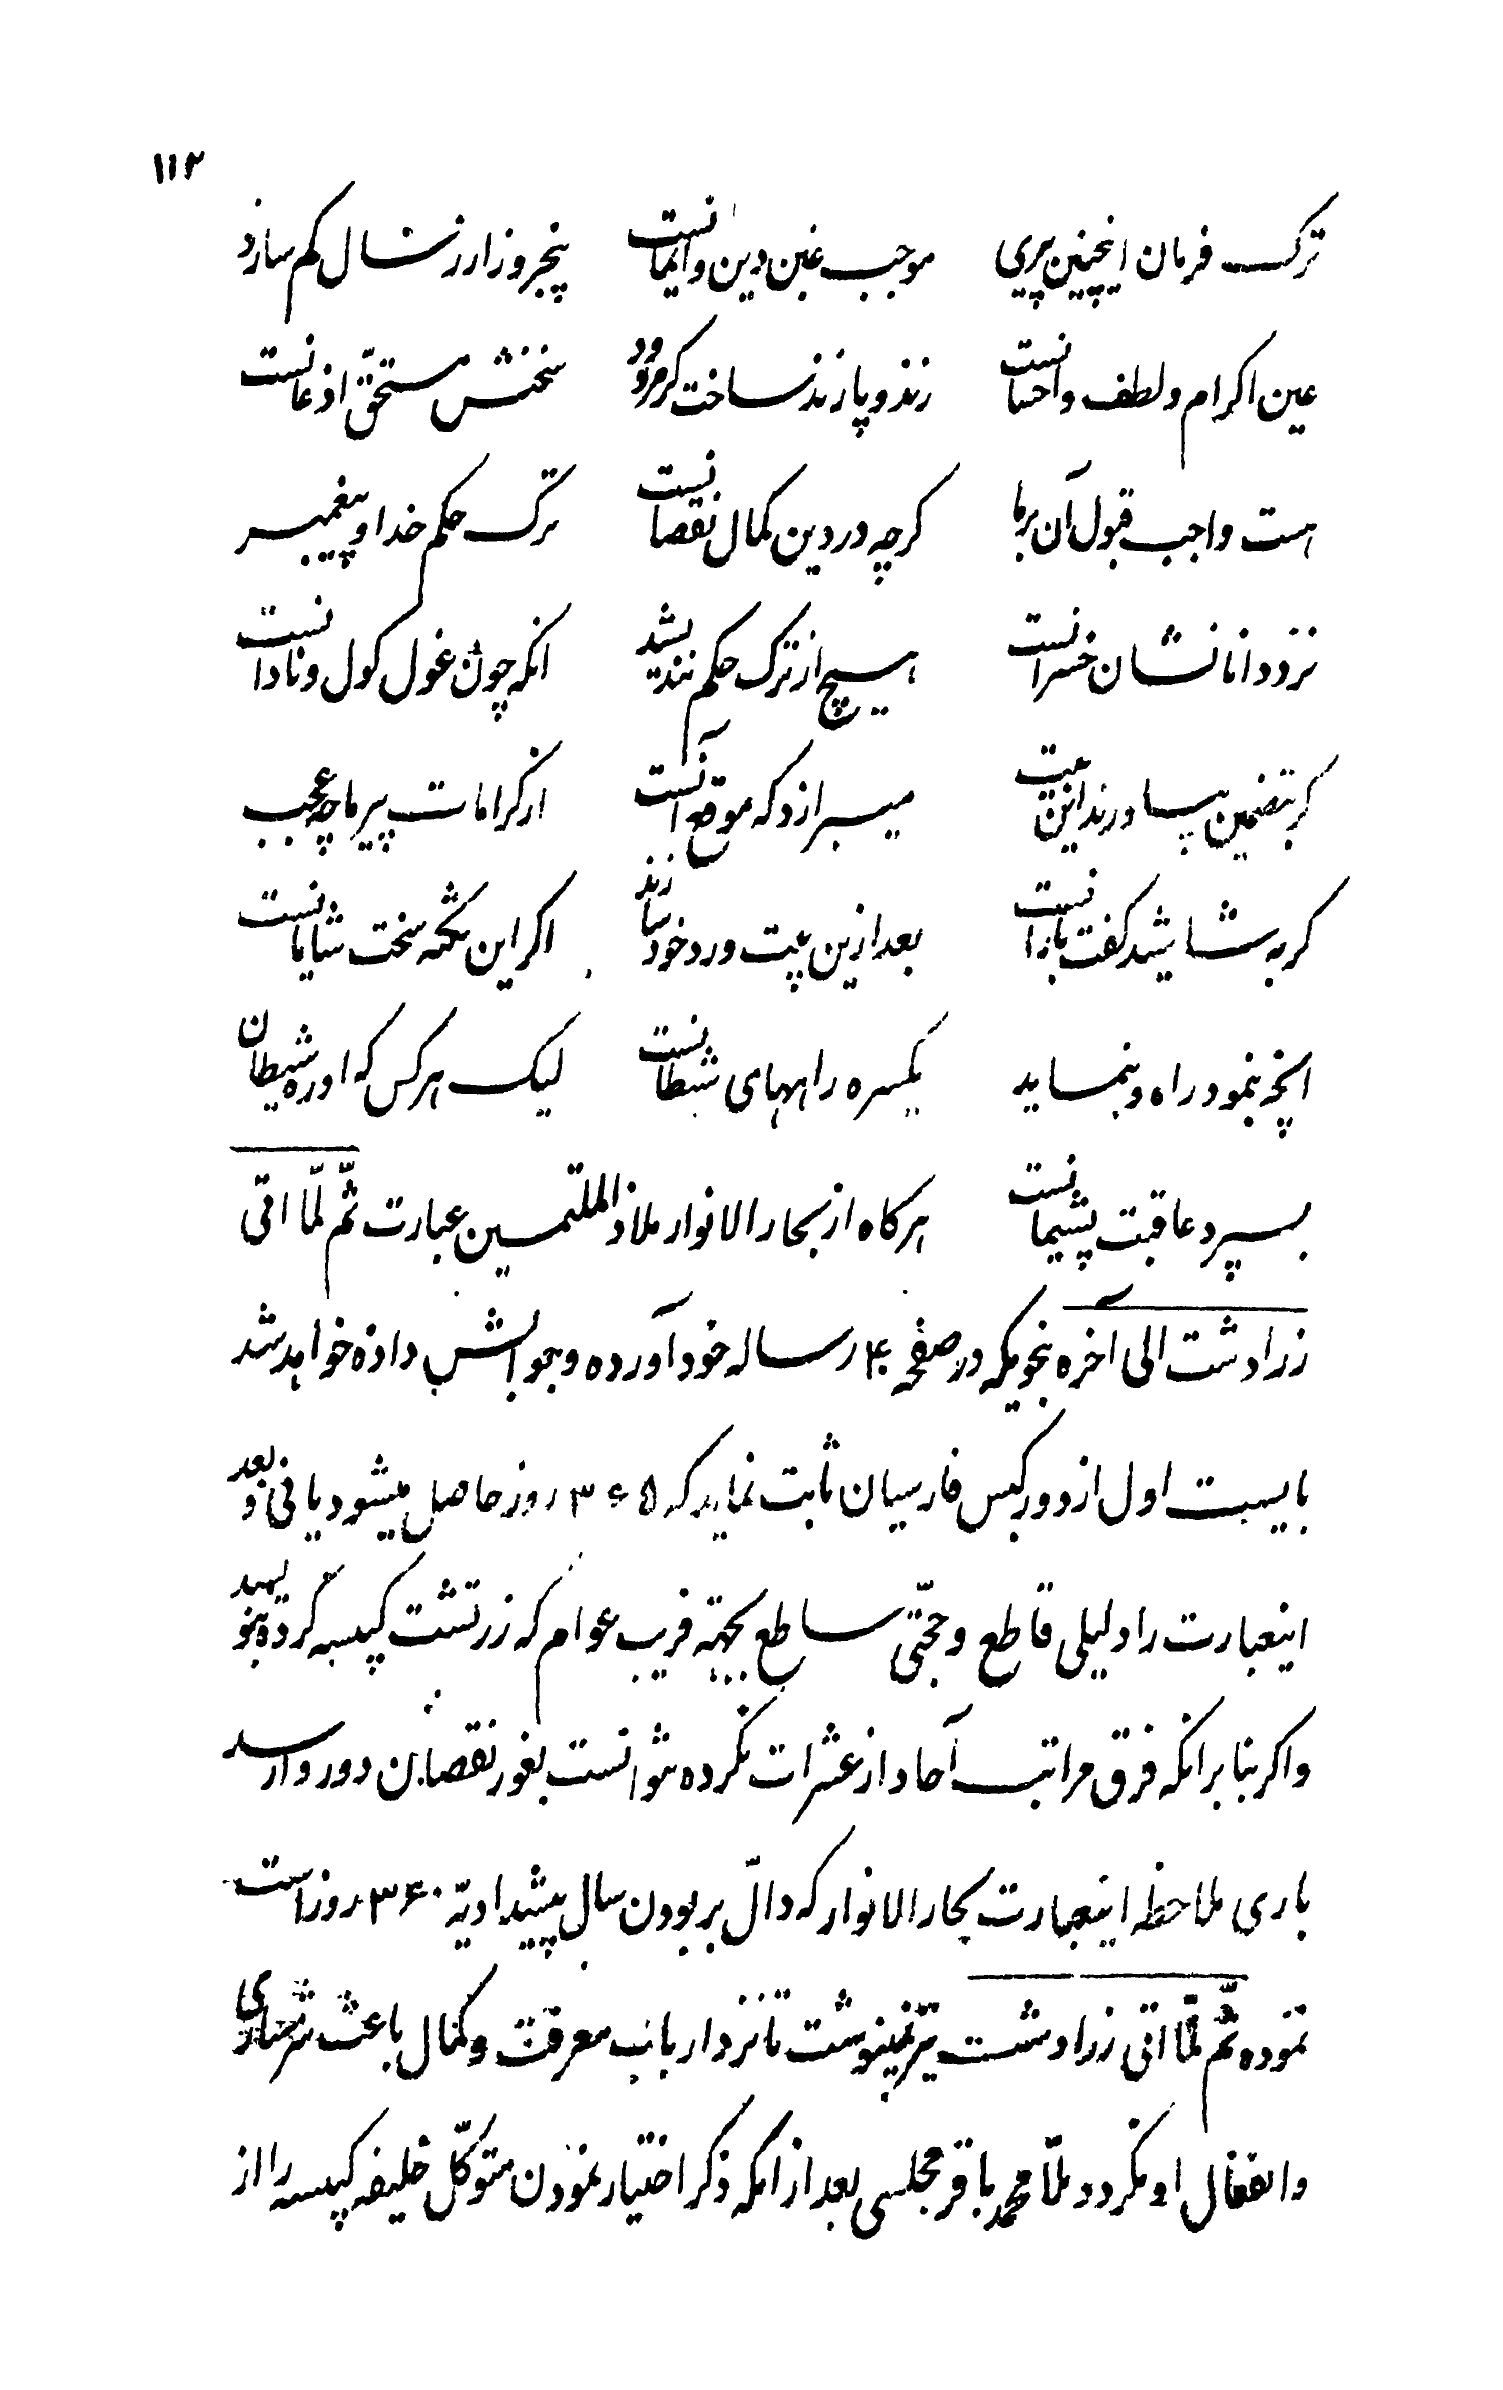 ۱۱۲
ترک فرمان اینچنین پیری موجب غبن دین و ایمانست پنجروز ار ز سال کم سازد
عین اکرام و لطف و احسانست زند و پازند ساخت کر مزدور سخنش مستحقّ اذعانست
هست واجب قبول آن بر ما کرچه در دین کمال نقصانست ترک حکم خدا و پیغمبر
نزد دانا نشان خسرانست هیچ از ترک حکم نندیشد انکه چون غول کول و نادانست
کر بتضمین بیاورند این بیت میبرازد که موقع آنست از کرامات پیر ما چه عجب
کر به شاشید کفت بارانست بعد ازین بیت ورد خود سازند اکر این نکته سخت شایانست
انچه بنمود راه و بنماید یکسره راههای شیطانست لیک هر کس که او ره شیطان
بسپرد عاقبت پشیمانست هرکاه از بحار الانوار ملاذ الملتمسین عبارت ثمّ لمّا اتی
زرادشت الی آخره بنحویکه در صفحه ۴۰ رساله خود آورده و جوابش داده خواهد شد
بایست اول از دور کبس فارسیان ثابت نماید که ۳۶۵ روز حاصل میشود یا فی و بعد
اینعبارت را دلیلی قاطع و حجّتی ساطع بجهته فریب عوام که زرتشت کبیسه کرده بنویسد
و اکر بنا بر انکه فرق مراتب آحاد از عشرات نکرده نتوانست بغور نقصان دور وارسد
باری ملاحظه اینعبارت بحار الانوار که دالّ بر بودن سال پیشدادیّه ۳۶۰ روز است
نموده ثمّ لمّا اتی زرادشت نیز نمینوشت تا نزد ارباب معرفت و کمال باعث شرمساری
و انفعال او نکردد ملّا محمد باقر مجلسی بعد از انکه ذکر اختیار نمودن متوکّل خلیفه کبیسه را از